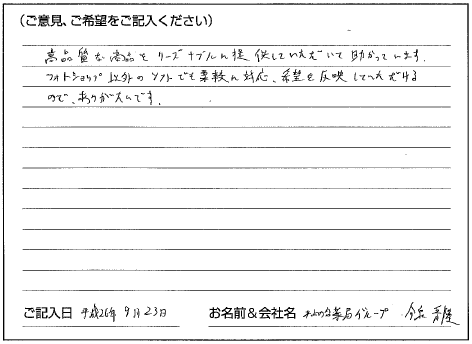 (ご意見、ご希望をご記入ください)
高品質な商品をリーズナブルに提供していただいて助かっています。
フォトショップ以外のソフトでも柔軟に対応、希望を反映していただける
ので、ありがたいです。
ご記入日 平成26年 9月23日
お名前&会社名 薬局グループ